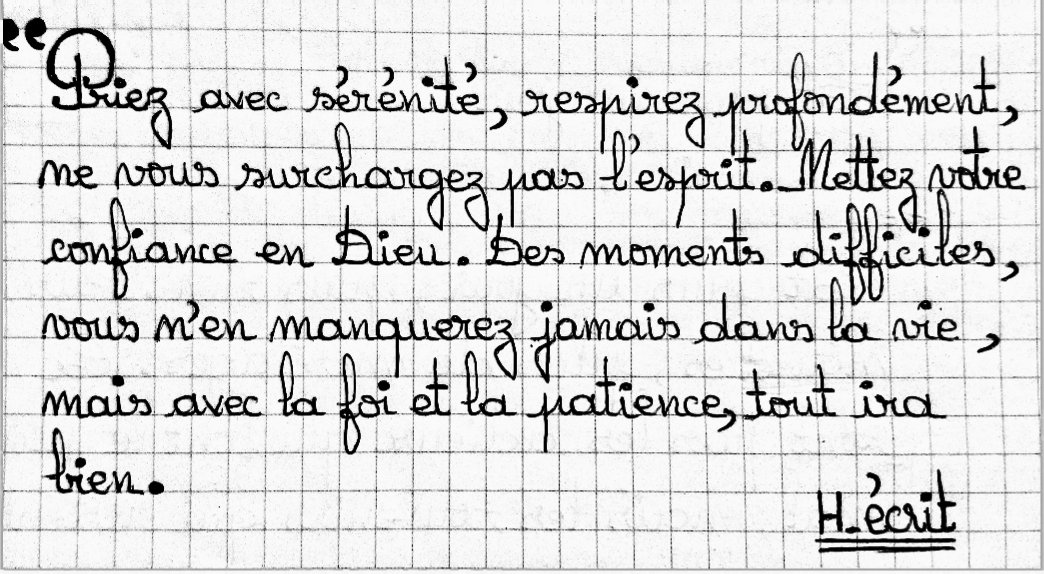 “Priez avec sérénité, respirez profondément,
ne vous surchargez pas l'esprit. Mettez votre
confiance en Dieu. Des moments difficiles,
vous n'en manquerez jamais dans la vie,
mais avec la foi et la patience, tout ira
bien.
H-écrit